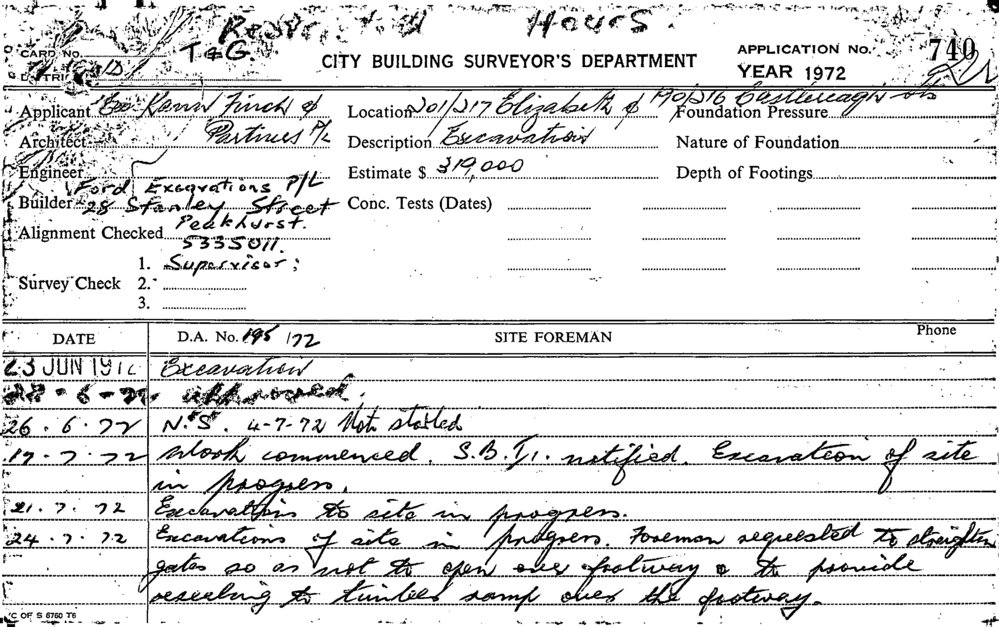 Hours.
T&G.
CARD No.
DISTRICT
CITY BUILDING SURVEYOR'S DEPARTMENT
APPLICATION No. 740
YEAR 1972
Applicant Finch &
Location 201/217 Elizabeth & 190/216 Castlereagh Sts
Foundation Pressure
Architect Partners P/L
Description Excavation
Nature of Foundation
Engineer
Estimate $ 319,000
Depth of Footings
Ford Excavations P/L
Builder 28 Stanley Street
Conc. Tests (Dates)
Peakhurst.
Alignment Checked 5335011.
1. Supervisor;
Survey Check 2.
3.
DATE D.A. No. 195/72 SITE FOREMAN Phone
23 JUN 1972 Excavation
approved.
26.6.72 N.S. 4-7-72 Not started
17.7.72 Work commenced. S.B.I. notified. Excavation of site
in progress.
21.7.72 Excavations to site in progress.
24.7.72 Excavations of site in progress. Foreman requested to straighten
gates so as not to open over footway & to provide
to timber ramp over the footway.
C OF S 6760 T6